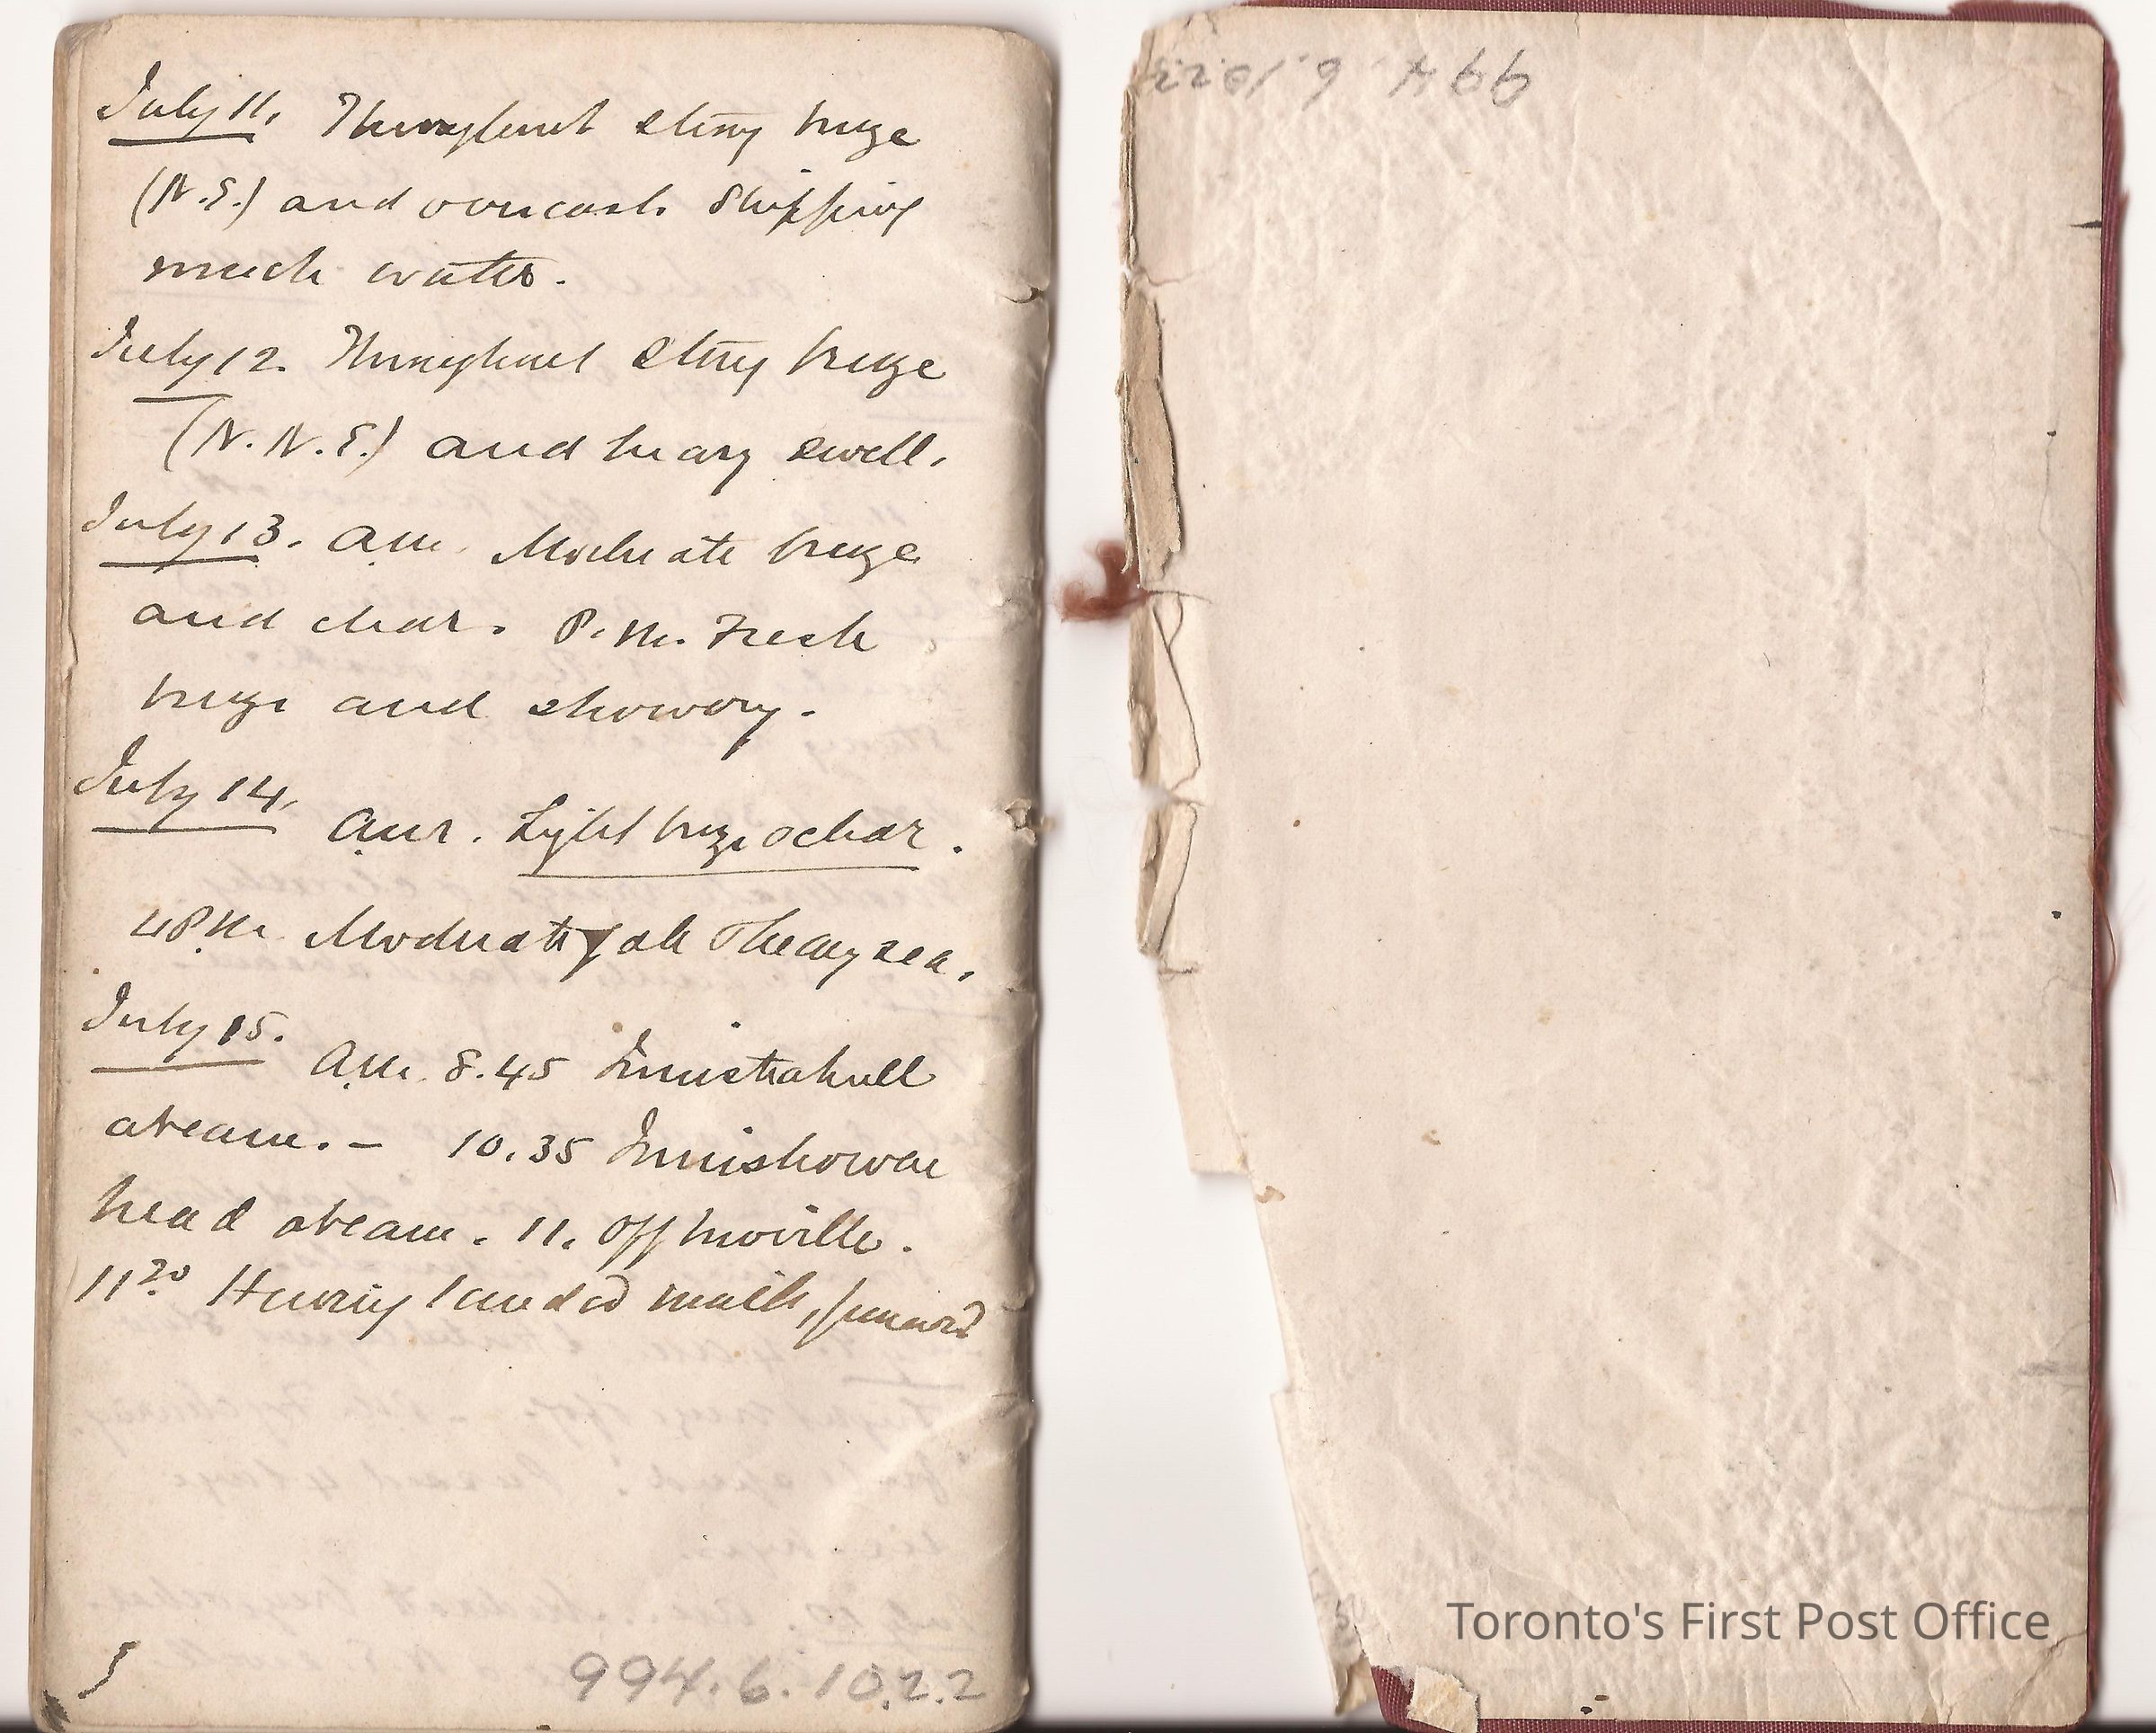 July 11. Throughout strong breeze
(N.E.) and overcast. Shipping
much water.
July 12. Throughout strong breeze
(N.N.E.) and heavy swell.
July 13. A.M. Moderate breeze
and clear. P.M. Fresh
breeze and showery.
July 14. A.M. Light breeze & clear.
4 P.M. Moderate gale & heavy sea.
July 15. A.M. 8.45 Innistrahull
abeam. – 10.35 Innishowen
head abeam. 11. Off Moville.
11.20 Having landed mails,
5
994.6.10.2.2
994.6.10.22
Toronto's First Post Office